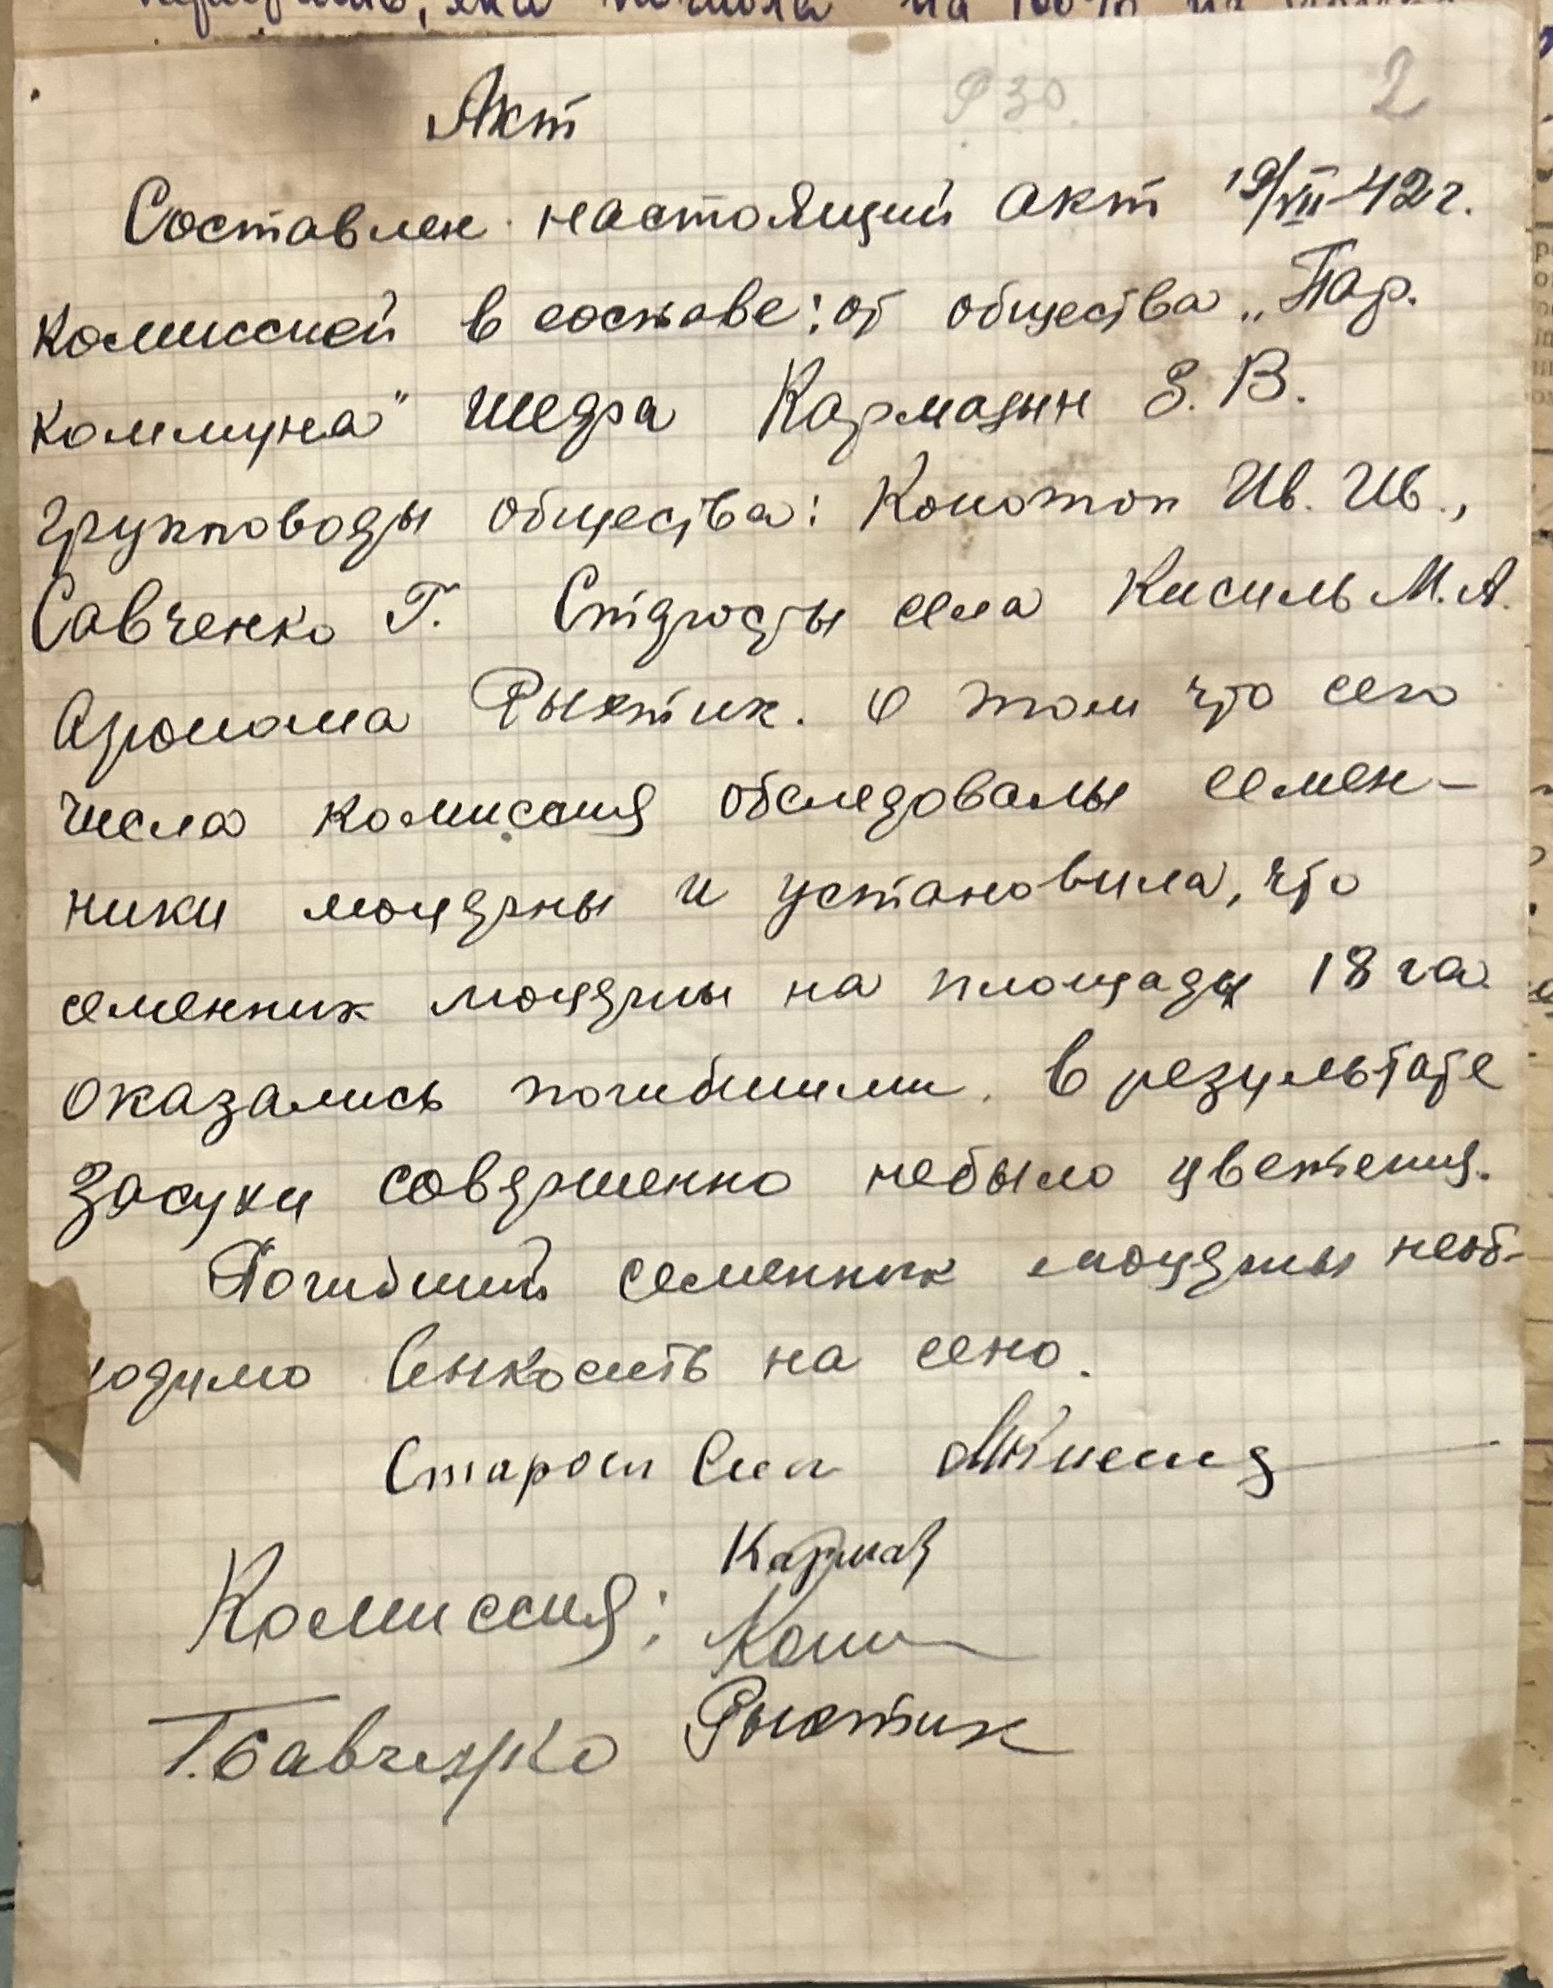 Р 30. 2
Акт
Составлен настоящий акт 19/VII-42 г.
комиссией в составе: от общества „Пар.
коммуна" шефа Кармазин З. В.
групповоды общества: Конотоп Ив. Ив.,
Савченко Г. Старосты села Кисиль М. А.
Агронома Рыктик. О том что сего
числа комиссия обследовалы семен-
ники люцерны и установила, что
семенник люцерны на площади 18 га
оказались погибшими. В результате
засухи совершенно небыло цветения.
Погибший семенник люцерны необ-
ходимо выкосить на сено.
Старост Села
Комиссия: Кармаз
Коно
Г. Савченко Рыктик